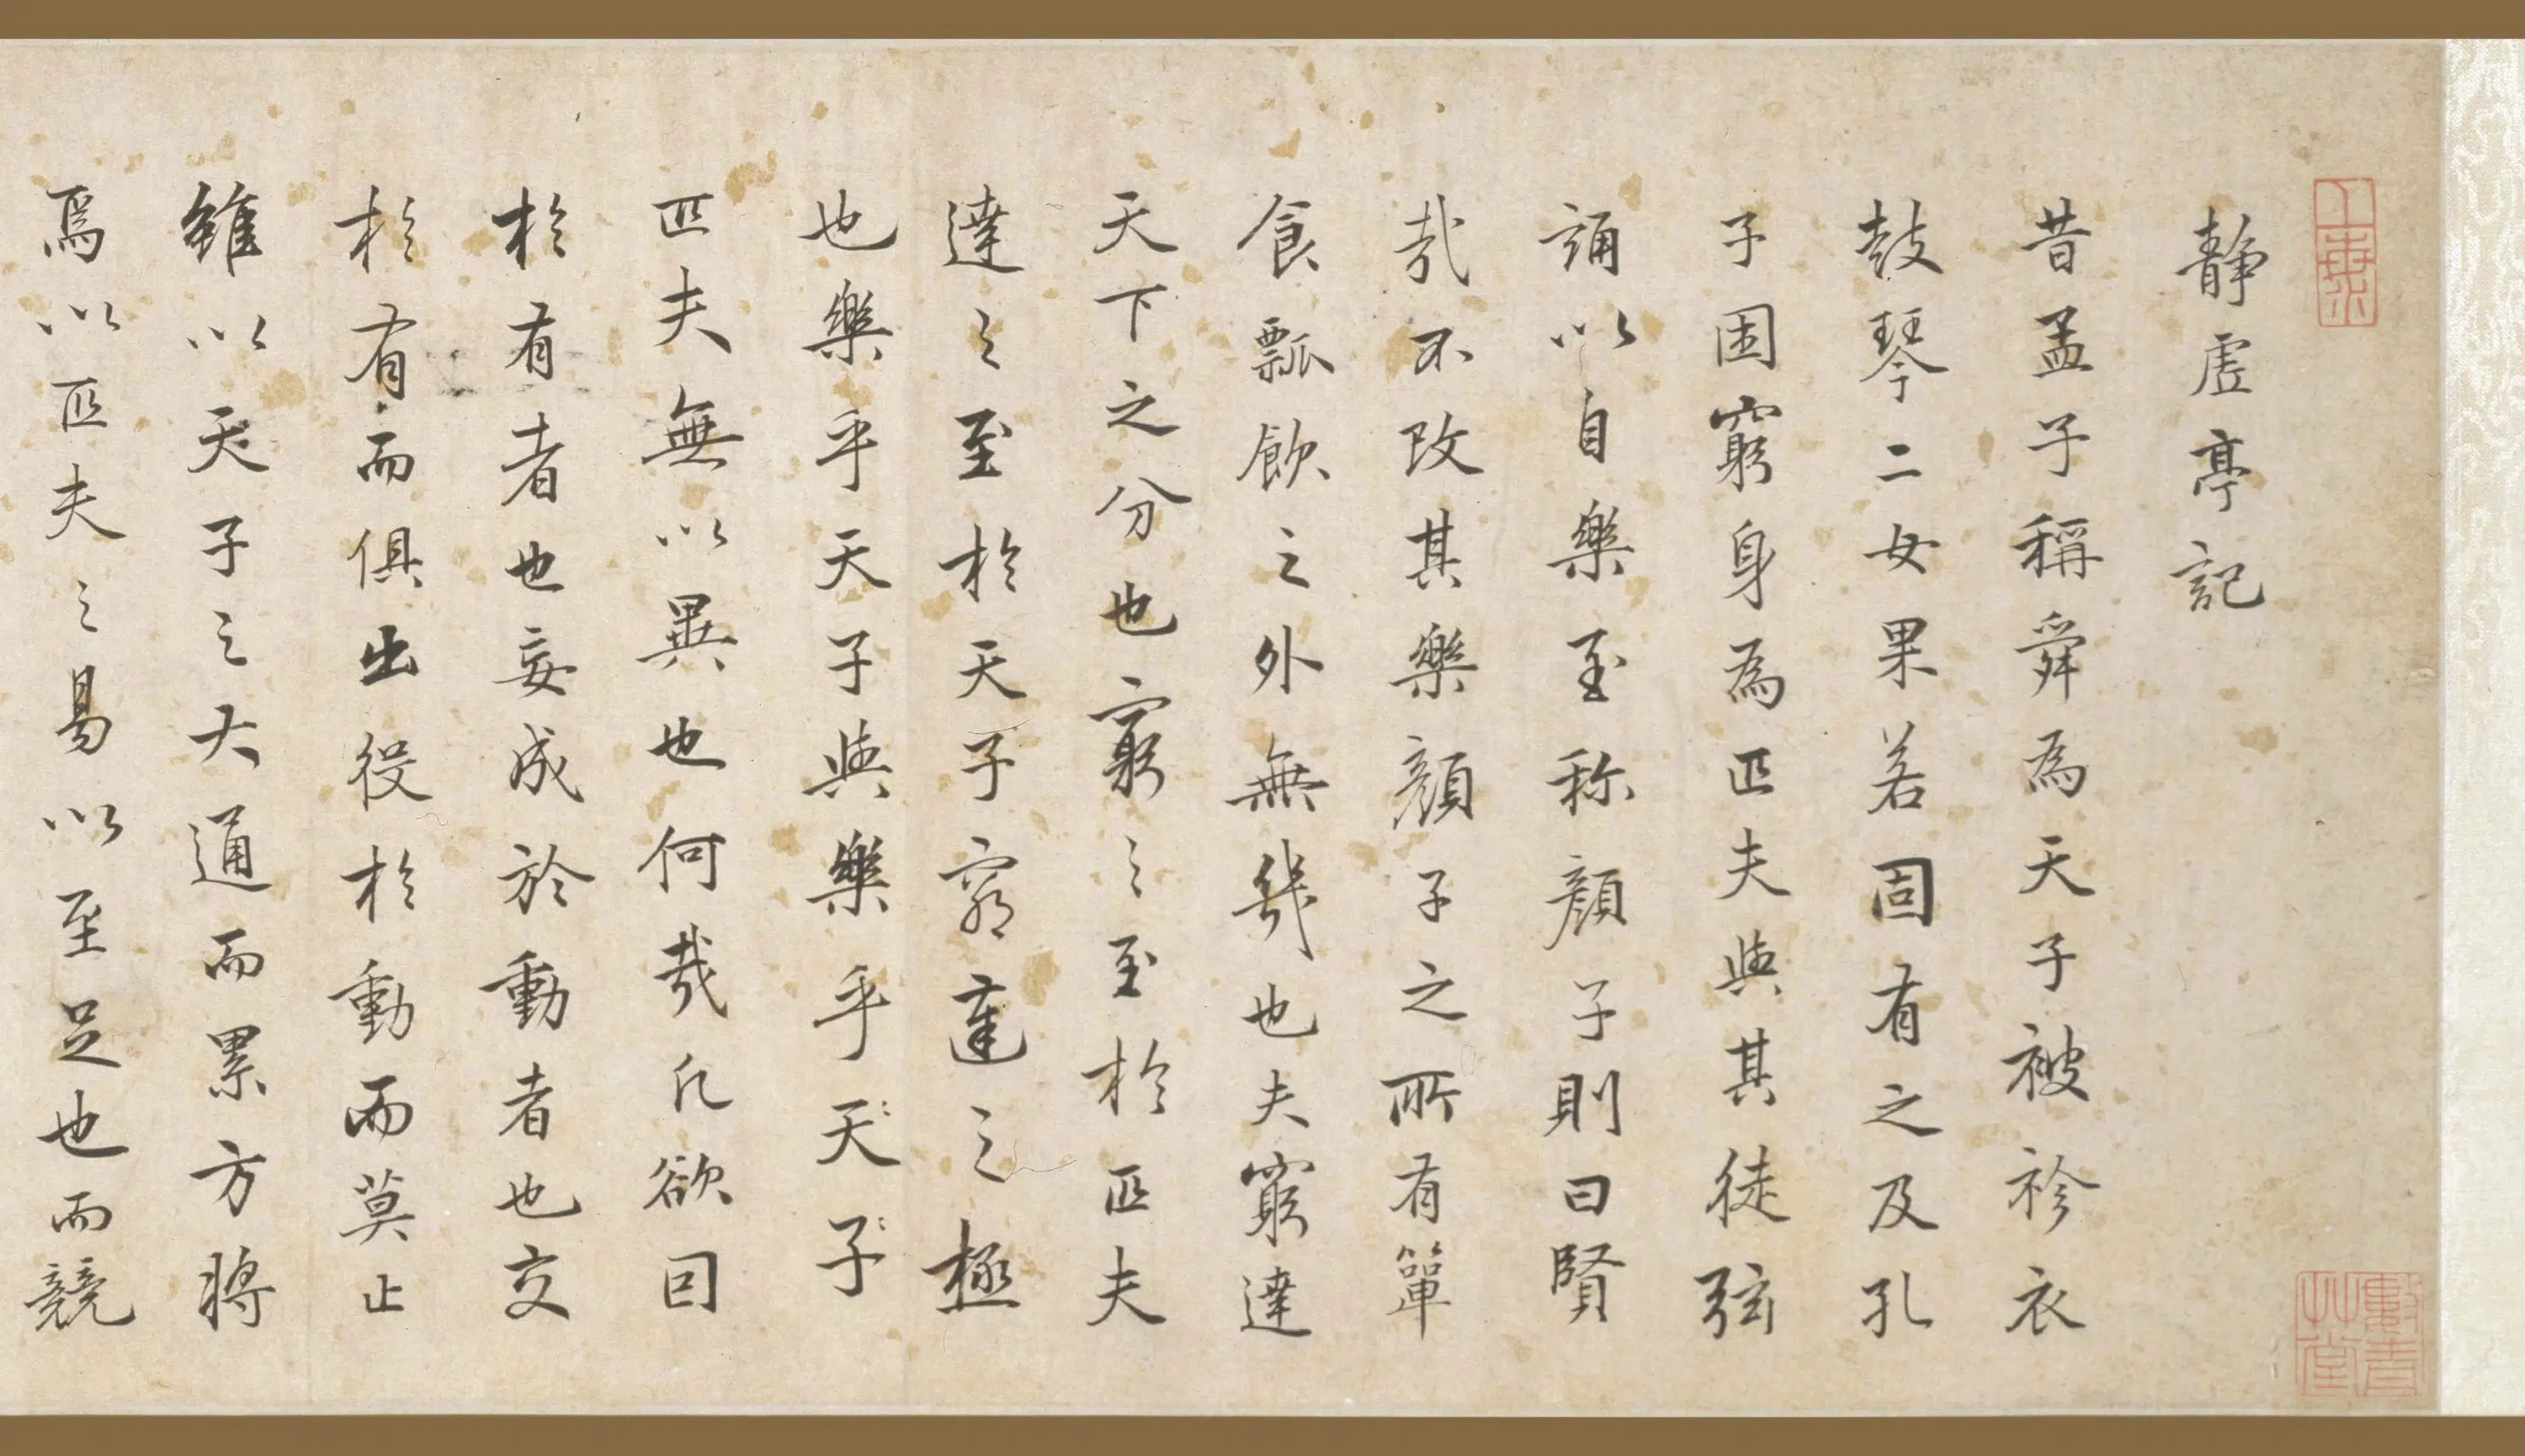 靜虛亭記
昔孟子稱舜為天子被袗衣
鼓琴二女果若固有之及孔
子困窮身為匹夫與其徒弦
誦以自樂至称顏子則曰賢
哉不改其樂顏子之所有簞
食瓢飲之外無幾也夫窮達
天下之分也窮之至於匹夫
達之至於天子窮達之極
也樂乎天子與樂乎天子
匹夫無以異也何哉凡欲囙
於有者也妄成於動者也交
於有而俱出役於動而莫止
雖以天子之大通而累方將
焉以匹夫之易以至足也而競